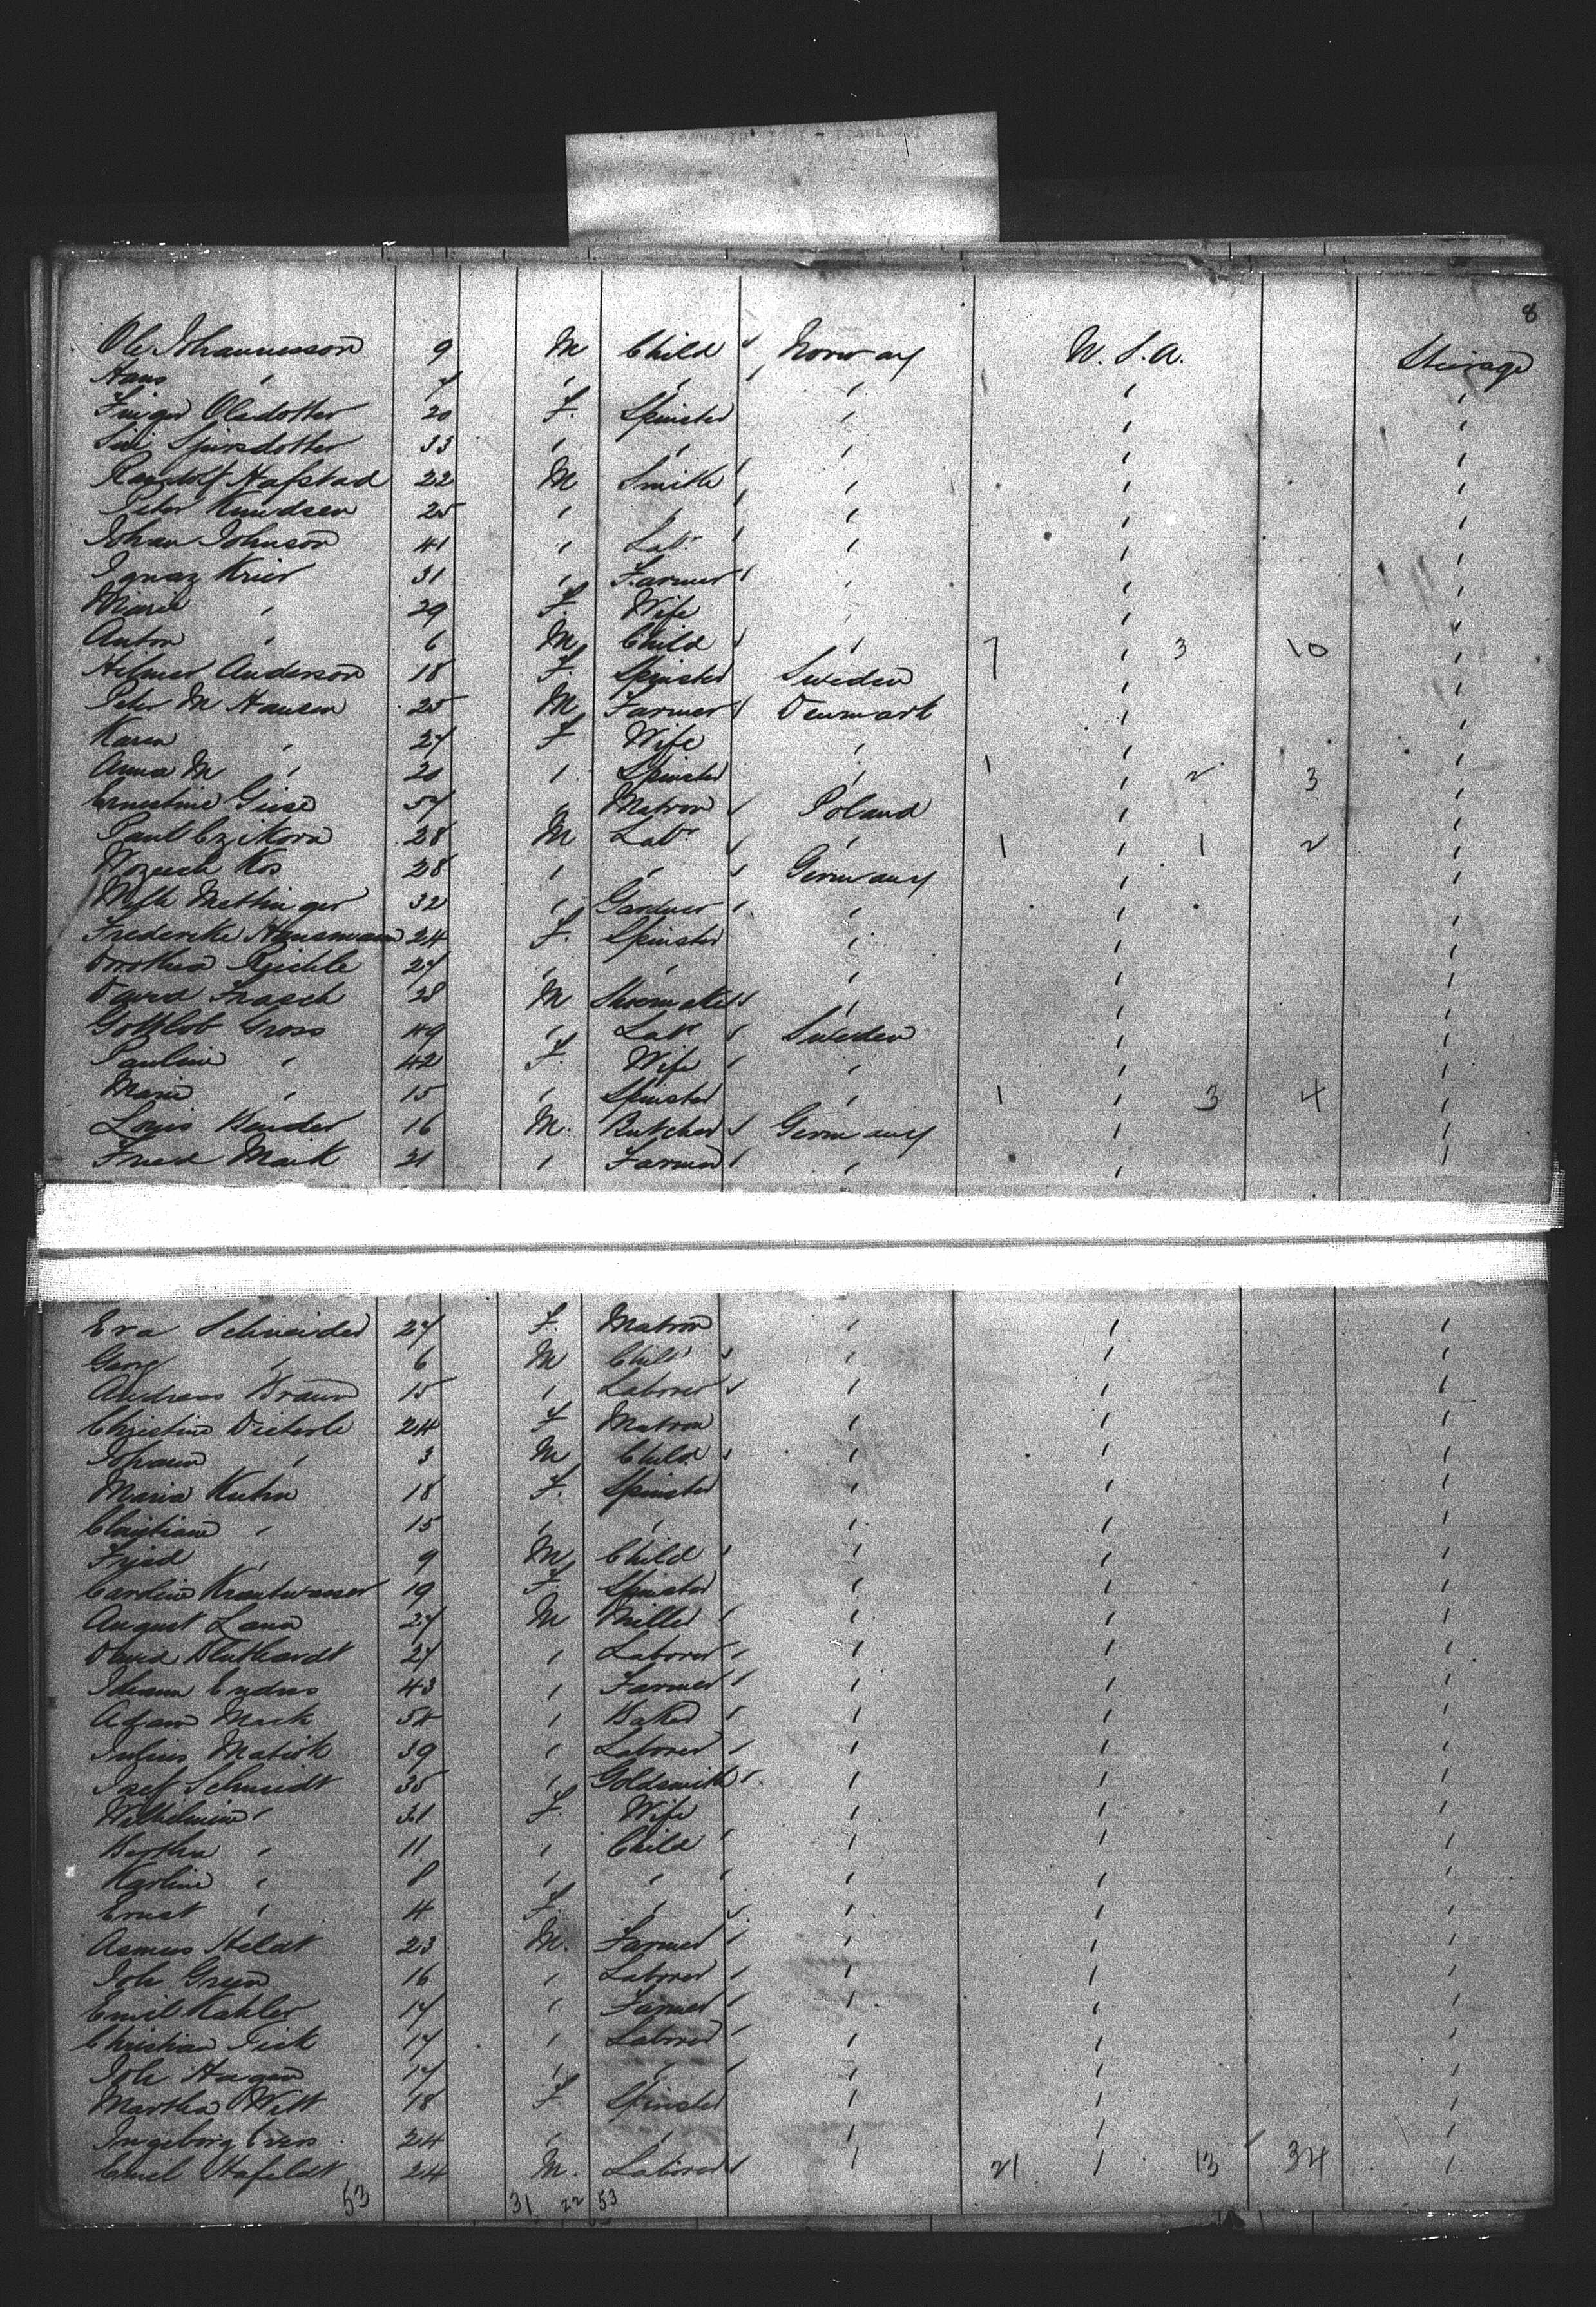 8
Ole Johannesson 9 M Child Norway U. S. A. Steirage
Hans " 7 " " " " "
Olsdotter 20 F. Spinster " " "
33 " " " " "
Hafstad 22 M Smith " " "
Peter Knudsen 25 " " " " "
Johan Johnson 41 " Labr " " "
Ignaz Krier 31 " Farmer " " "
Marie " 29 F. Wife " " "
Anton " 6 M Child " 7 " 3 10 "
Helmer Anderson 18 F. Spinster Sweden " "
Peter M Hansen 25 M Farmer Denmark " "
Karen " 27 F Wife " " "
Anna M " 20 " Spinster " 1 " 2 3 "
Ernestine Giese 57 " Matron Poland " "
Paul Czikora 28 M Labr " 1 " 1 2 "
Kos 28 " " Germany " "
32 " Gardner " " "
Frederike 24 F. Spinster " " "
Dorothea 27 " " " " "
David Frasch 28 M Shoemaker " " "
Gottlob Gross 49 " Labr Sweden " "
Pauline " 42 F. Wife " " "
Marie " 15 " Spinster " 1 " 3 4 "
Louis Bender 16 M. Butcher Germany " "
Fried Maik 21 " Farmer " " "
Eva Schneider 27 F. Matron " " "
Georg " 6 M Child " " "
Andreas Braun 15 " Laborer " " "
Christine Dieterle 24 F Matron " " "
Johann " 3 M Child " " "
Maria Kuhn 18 F. Spinster " " "
Christiane " 15 " " " " "
Fried " 9 M Child " " "
Caroline Krautwasser 19 F. Spinster " " "
August Lana 27 M Miller " " "
David Bluthardt 27 " Laborer " " "
Johann Endres 43 " Farmer " " "
Adam Mack 54 " Baker " " "
Julius Matick 39 " Laborer " " "
Josef Schmidt 35 " Goldsmith " " "
Wilhelmine " 31 F. Wife " " "
Bertha " 11 " Child " " "
Karline " 8 " " " " "
Ernst " 4 F. " " " "
Asmus Heldt 23 M. Farmer " " "
Joh Green 16 " Laborer " " "
Emil Kahler 17 " Farmer " " "
Christian 17 " Laborer " " "
Joh Hagen 17 " " " " "
Martha Witt 18 F Spinster " " "
Ingeborg 24 " " " " "
Emil Hafeldt 24 M. Laborer " 21 " 13 34 "
53 31 22 53